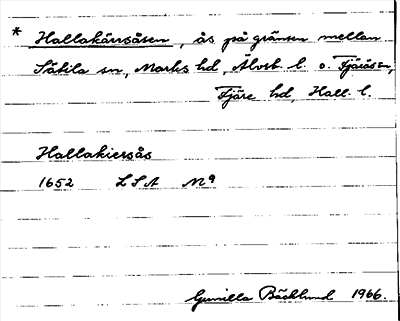 * Hallakärrsåsen, ås på gränsen mellan
Sätila sn, Marks hd, Älvsb. l. o. Fjäråsen,
Fjäre hd, Hall. l.
Hallakiersås
1652 LSA Nº
Gunilla Bäcklund 1966.